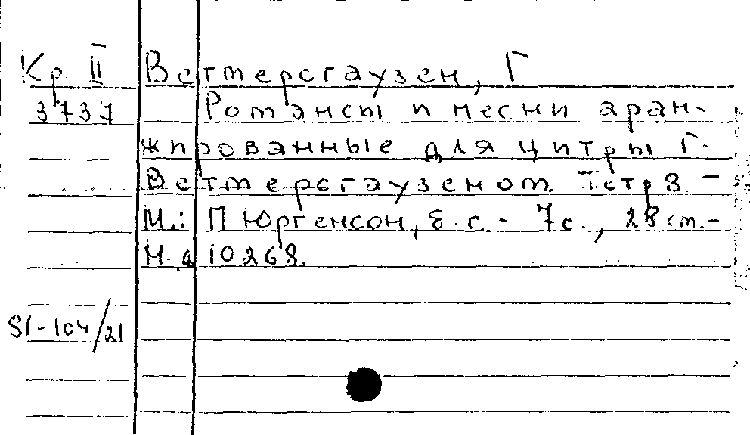 Кр II Веттерсгаузен, Г
3737 Романсы и песни аран-
жированные для цитры Г.
Веттерсгаузеном. Тетр 3 -
М.: П Юргенсон, б. г. - 7с., 28 см. -
Н. д 10268.
81-104/21